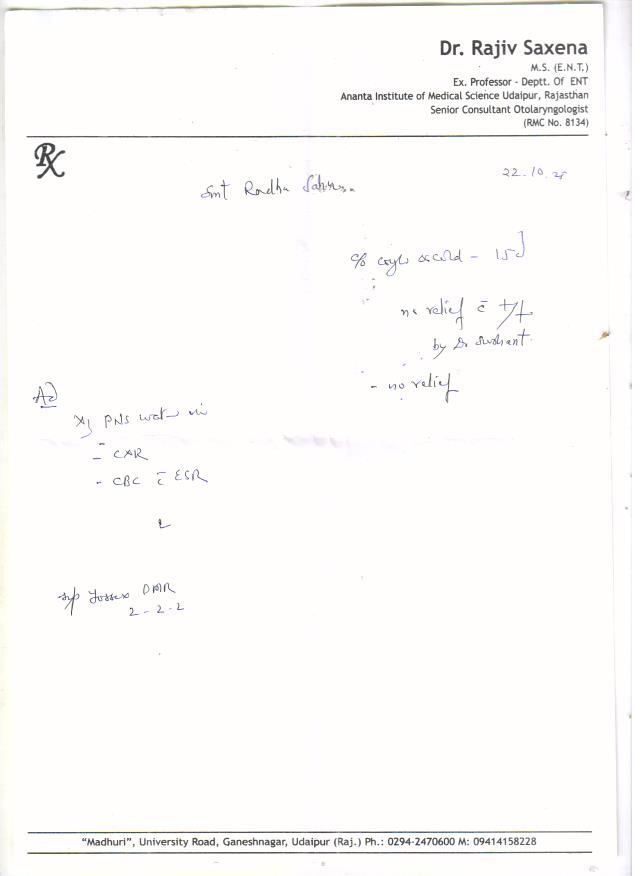 Dr. Rajiv Saxena
M.S. (E.N.T.)
Ex. Professor - Deptt. Of ENT
Ananta Institute of Medical Science Udaipur, Rajasthan
Senior Consultant Otolaryngologist
(RMC No. 8134)
Rx
22.10.
Smt Radha
c/o cold - 15d
no relief c̄ t/t
by Dr
- no relief
Ad
PNS
- CXR
- CBC c̄ ESR
syp Tossex DMR
2-2-2
"Madhuri", University Road, Ganeshnagar, Udaipur (Raj.) Ph.: 0294-2470600 M: 09414158228